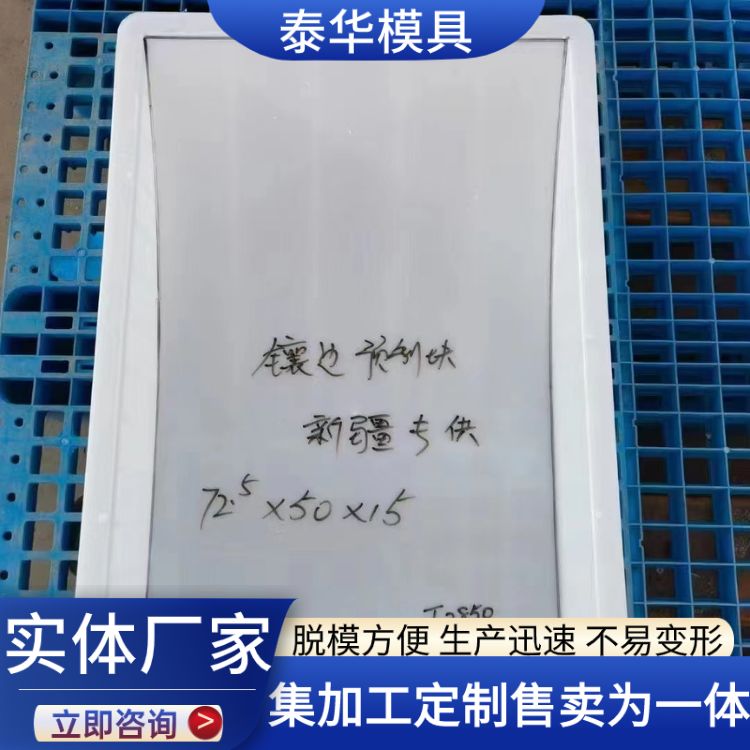 泰华模具
镶边预制块
新疆专供
72.5×50×15
实体厂家
脱模方便 生产迅速 不易变形
立即咨询 >
集加工定制售卖为一体